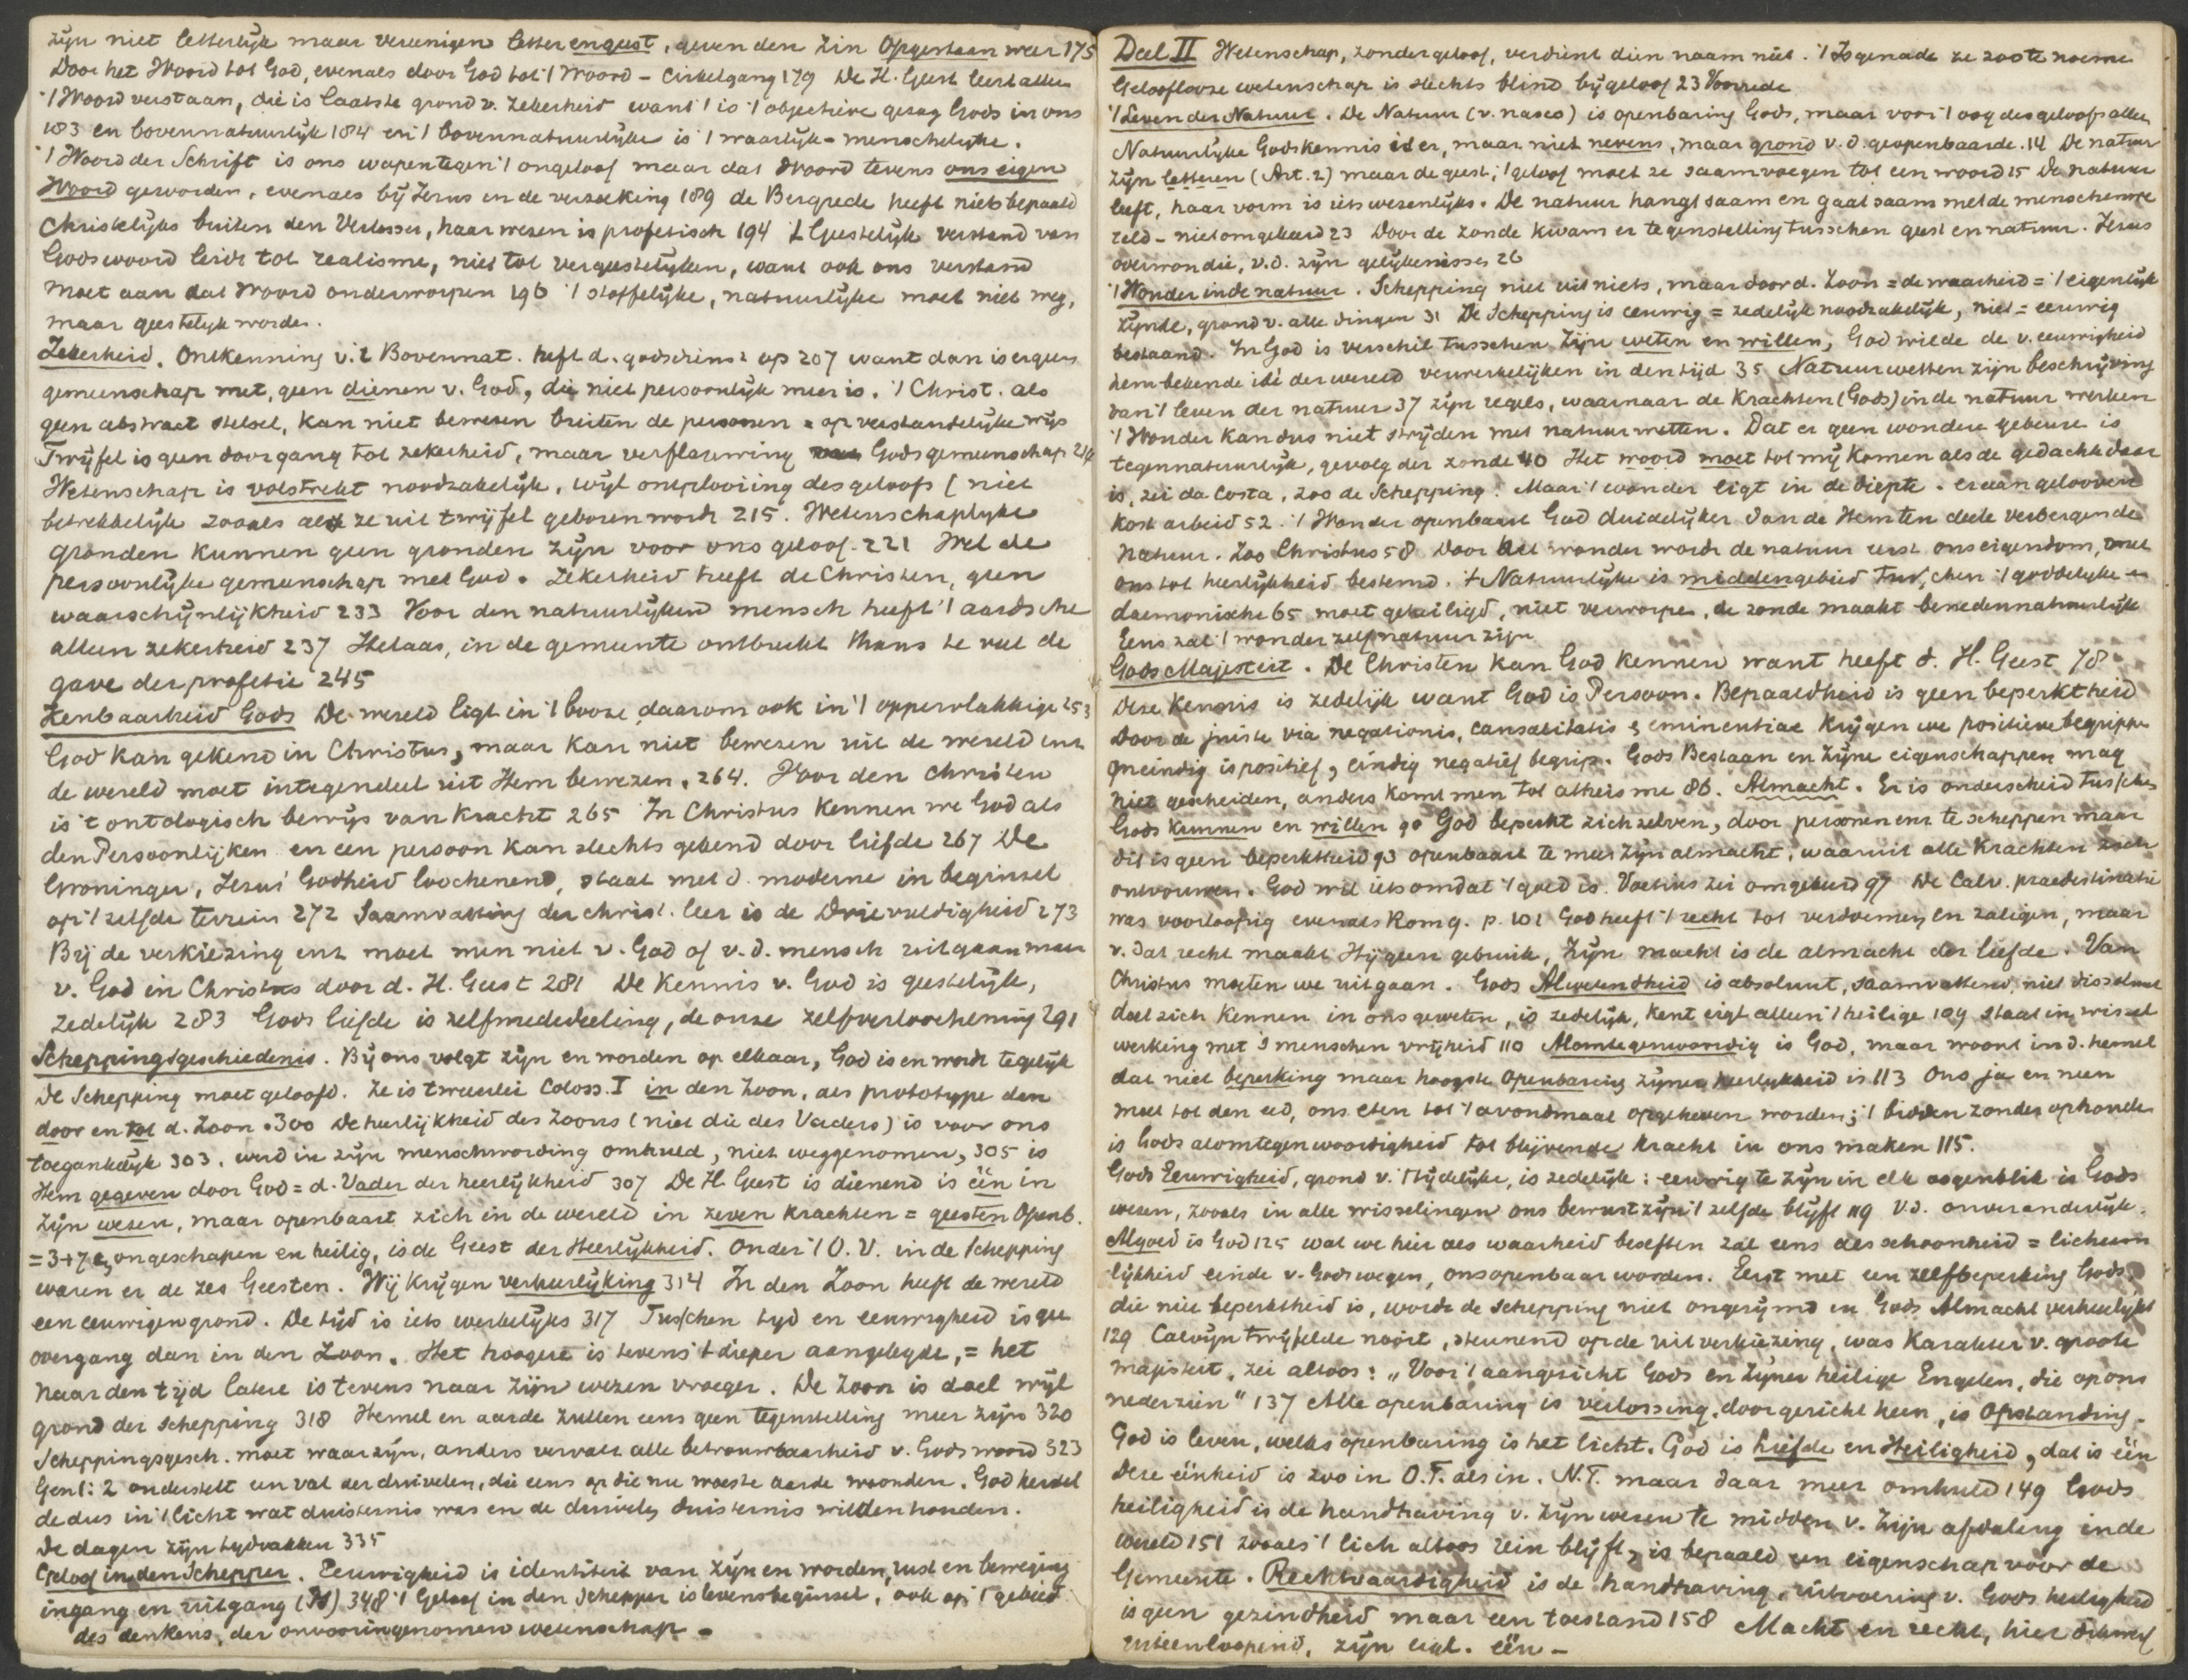 zijn niet letterlijk maar vereenigen letter en geest, geven den zin Opgestaan weer 175
Door het Woord tot God, evenals door God tot 't Woord - Cirkelgang 179 De H. Geest leert allen
't Woord verstaan, die is laatste grond v. zekerheid want 't is 't objectieve gezag Gods in ons
183 en bovennatuurlijk 184 en 't bovennatuurlijke is 't waarlijk-menschelijke.
't Woord der Schrift is ons wapen tegen 't ongeloof maar dat Woord tevens ons eigen
Woord geworden, evenals bij Jezus in de verzoeking 189 de Bergrede heeft niets bepaald
Christelijks buiten den Verlosser, haar wezen is profetisch 194 't Geestelijk verstand van
Gods woord leidt tot realisme, niet tot vergeestelijken, want ook ons verstand
moet aan dat Woord onderworpen 196 't stoffelijke, natuurlijke moet niet weg,
maar geestelijk worden.
Zekerheid. Ontkenning v. 't Bovennat. heft d. godsdienst op 207 want dan is er geen
gemeenschap met, geen dienen v. God, die niet persoonlijk meer is. 't Christ. als
geen abstract stelsel, kan niet bewezen buiten de persoon = op verstandelijke wijs
Twijfel is geen doorgang tot zekerheid, maar verflauwing Gods gemeenschap 214
Wetenschap is volstrekt noodzakelijk, wijl ontplooiing des geloofs (niet
betrekkelijk zooals als ze uit twijfel geboren wordt 215. Wetenschaplijke
gronden kunnen geen gronden zijn voor ons geloof. 221 Wel de
persoonlijke gemeenschap met God. Zekerheid heeft de Christen, geen
waarschijnlijkheid 233 Voor den natuurlijken mensch heeft 't aardsche
alleen zekerheid 237 Helaas, in de gemeente ontbreekt thans te veel de
gave der profetie 245
Kenbaarheid Gods De wereld ligt in 't booze, daarom ook in 't oppervlakkige 253
God kan gekend in Christus, maar kan niet bewezen uit de wereld enz
de wereld moet integendeel uit Hem bewezen. 264. Voor den christen
is 't ontologisch bewijs van kracht 265 In Christus kennen we God als
den Persoonlijken en een persoon kan slechts gekend door liefde 267 De
Groninger, Jezus' Godheid loochenend, staat met d. moderne in beginsel
op 't zelfde terrein 272 Saamvatting der christ. leer is de Drievuldigheid 273
Bij de verkiezing enz moet men niet v. God of v.d. mensch uitgaan maar
v. God in Christus door d. H. Geest 281 De Kennis v. God is geestelijk,
zedelijk 283 Gods liefde is zelfmededeeling, de onze zelfverloochening 291
Scheppingsgeschiedenis. Bij ons volgt zijn en worden op elkaar, God is en wordt tegelijk
de Schepping moet geloofd. Ze is tweeerlei Coloss. I in den Zoon, als prototype dan
door en tot d. Zoon. 300 De heerlijkheid des Zoons (niet die des Vaders) is voor ons
toegankelijk 303. werd in zijn menschwording omhuld, niet weggenomen, 305 is
Hem gegeven door God = d. Vader der heerlijkheid 307 De H. Geest is dienend is één in
Zijn wezen, maar openbaart zich in de wereld in zeven krachten = geesten Openb.
= 3+7 ongeschapen en heilig, is de Geest der Heerlijkheid. Onder 't O.V. in de schepping
waren er de zes Geesten. Wij krijgen verheerlijking 314 In den Zoon heeft de wereld
een eeuwigen grond. De tijd is iets werkelijks 317 Tusschen tijd en eeuwigheid is gee
overgang dan in den Zoon. Het hoogere is tevens 't dieper aangelegde, = het
naar den tijd latere is tevens naar zijn wezen vroeger. De Zoon is doel wijl
grond der schepping 318 Hemel en aarde zullen eens geen tegenstelling meer zijn 320
Scheppingsgesch. moet waar zijn, anders vervalt alle betrouwbaarheid v. Gods woord 323
Gen 1:2 onderstelt een val der duivelen, die eens op die nu woeste aarde woonden. God herstel
de dus in 't licht wat duisternis was en de duivels duisternis wilden houden.
De dagen zijn tijdvakken 335
Geloof in den Schepper. Eeuwigheid is identiteit van zijn en worden, rust en beweging
ingang en uitgang 348 't Geloof in den Schepper is levensbeginsel, ook op 't gebied
des denkens, der onvooringenomen wetenschap -
Deel II Wetenschap, zonder geloof, verdient dien naam niet. 't Is genade ze zoo te noeme
Geloofloose wetenschap is slechts blind bijgeloof 23 Voorrede
't Leven der Natuur. De Natuur (v. nasco) is openbaring Gods, maar voor 't oog des geloofs alleen
Natuurlijke Godskennis is er, maar niet nevens, maar grond v.d. geopenbaarde. 14 De natuur
zijn letteren (Art. 2) maar de geest, 't geloof moet ze saamvoegen tot een woord 15 De natuur
leeft, haar vorm is iets wezenlijks. De natuur hangt saam en gaat saam met de menschenwe
reld - niet omgekeerd 23 Door de zonde kwam er tegenstelling tusschen geest en natuur. Jezus
overwon die, v.d. zijn gelijkenissen 26
't Wonder in de natuur. Schepping niet uit niets, maar door d. Zoon = de waarheid = 't eigenlijk
zijnde, grond v. alle dingen 31 De Schepping is eeuwig = zedelijk noodzakelijk, niet = eeuwig
bestaand. In God is verschil tusschen Zijn weten en willen, God wilde de v. eeuwigheid
hem bekende idé der wereld verwerkelijken in den tijd 35 Natuurwetten zijn beschrijving
van 't leven der natuur 37 zijn regels, waarnaar de Krachten (Gods) in de natuur werken
't Wonder kan dus niet strijden met natuurwetten. Dat er geen wondere gebeure is
tegennatuurlijk, gevolg der zonde 40 Het woord moet tot mij komen als de gedachte daar
is, zei da Costa, zoo de Schepping. Maar 't wonder ligt in de diepte. eraan gelooven
kost arbeid 52. 't Wonder openbaart God duidelijker dan de Hem ten deele verbergende
natuur. Zoo Christus 58 Door het wonder wordt de natuur eerst ons eigendom, met
ons tot heerlijkheid bestemd. 't Natuurlijke is middengebied tusschen 't goddelijke en
daemonische 65 moet geheiligd, niet verworpen, de zonde maakt benedennatuurlijk
Eens zal 't wonder zelf natuur zijn
Gods Majesteit. De Christen kan God kennen want heeft d. H. Geest 78
Deze Kennis is zedelijk want God is Persoon. Bepaaldheid is geen beperktheid
Door de juiste via negationis, causalitatis & eminentiae krijgen we positieve begrippen
Oneindig is positief, eindig negatief begrip. Gods Bestaan en Zijne eigenschappen mag
niet gescheiden, anders komt men tot atheisme 86. Almacht. Er is onderscheid tusschen
Gods Kunnen en willen 90 God beperkt zichzelven, door personen enz te scheppen maar
dit is geen beperktheid 93 openbaart te meer zijn almacht, waaruit alle krachten zich
ontvouwen. God wil iets omdat 't goed is. Voetius zei omgekeerd 97 De Calv. praedestinatie
was voorloopig evenals Rom 9. p. 101 God heeft 't recht tot verdoemen en zaligen, maar
v. dat recht maakt Hij geen gebruik, Zijn macht is de almacht der liefde. Van
Christus moeten we uitgaan. Gods Alwetendheid is absoluut, saamvattend, niet dissolveert
doet zich kennen in ons geweten, is zedelijk, kent eigl alleen 't heilige 109 staat in wissel
werking met 's menschen vrijheid 110 Alomtegenwoordig is God, maar woont in d. hemel
dat niet beperking maar hoogste Openbaring zijner heerlijkheid is 113 Ons ja en neen
moet tot den eed, ons eten tot 't avondmaal opgeheven worden; 't bidden zonder ophouden
is Gods alomtegenwoordigheid tot blijvende kracht in ons maken 115.
Gods Eeuwigheid, grond v. 't tijdelijke, is zedelijk: eeuwig te zijn in elk oogenblik is Gods
wezen, zooals in alle wisselingen ons bewustzijn 't zelfde blijft 119 v.d. onveranderlijk.
Algoed is God 125 wat we hier als waarheid beseffen zal eens als schoonheid = lichaam
lijkheid einde v. Gods wegen, ons openbaar worden. Eerst met een zelfbeperking Gods,
die niet beperktheid is, wordt de schepping niet ongerijmd en Gods Almacht verheerlijkt
129 Calvijn twijfelde nooit, steunend op de uitverkiezing, was Karakter v. groote
majesteit, zei altoos: „Voor 't aangezicht Gods en Zijner heilige Engelen, die op ons
nederzien" 137 Alle openbaring is verlossing, door gericht heen, is Opstanding.
God is leven, welks openbaring is het licht. God is Liefde en Heiligheid, dat is één
Deze éénheid is zoo in O.T. als in N.T. maar daar meer omhuld 149 Gods
heiligheid is de handhaving v. Zijn wezen te midden v. Zijn afdaling in de
wereld 151 zooals 't licht altoos rein blijft, is bepaald een eigenschap voor de
Gemeente. Rechtvaardigheid is de handhaving, uitvoering v. Gods heiligheid
is geen gezindheid maar een toestand 158 Macht en recht, hier dikwerf
uiteenloopend, zijn eigl. één -